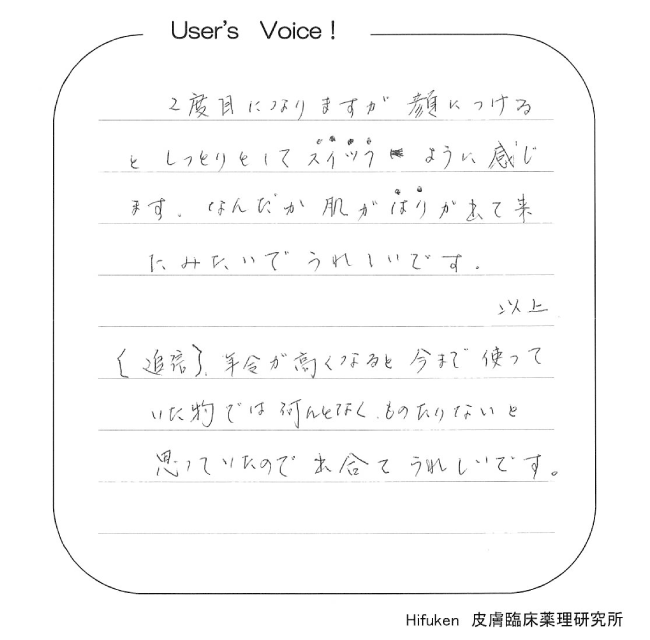 User's Voice !
2度目になりますが 顔につける
と しっとりとして スイツク ように 感じ
ます。なんだか 肌が はりが 出て 来
たみたいで うれしいです。
以上
{追寄}、年令が高くなると 今まで 使って
いた物では 何んとなく ものたりないと
思っていたので 出合て うれしいです。
Hifuken 皮膚臨床薬理研究所